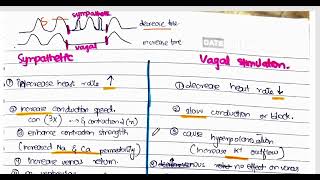 sympathetic
decrease tone
increase tone
vagal
DATE
Sympathetic
Vagal stimulation.
① increase heart rate ↑
① decrease heart rate ↓
② increase conduction speed.
② slow conduction or block.
con (3x) & contraction 2 (x)
③ enhance contraction strength
③ cause hyperpolarization
(increased Na & Ca permeability)
(Increase K+ outflow)
④ increase venous return.
④ venous no effect on venous